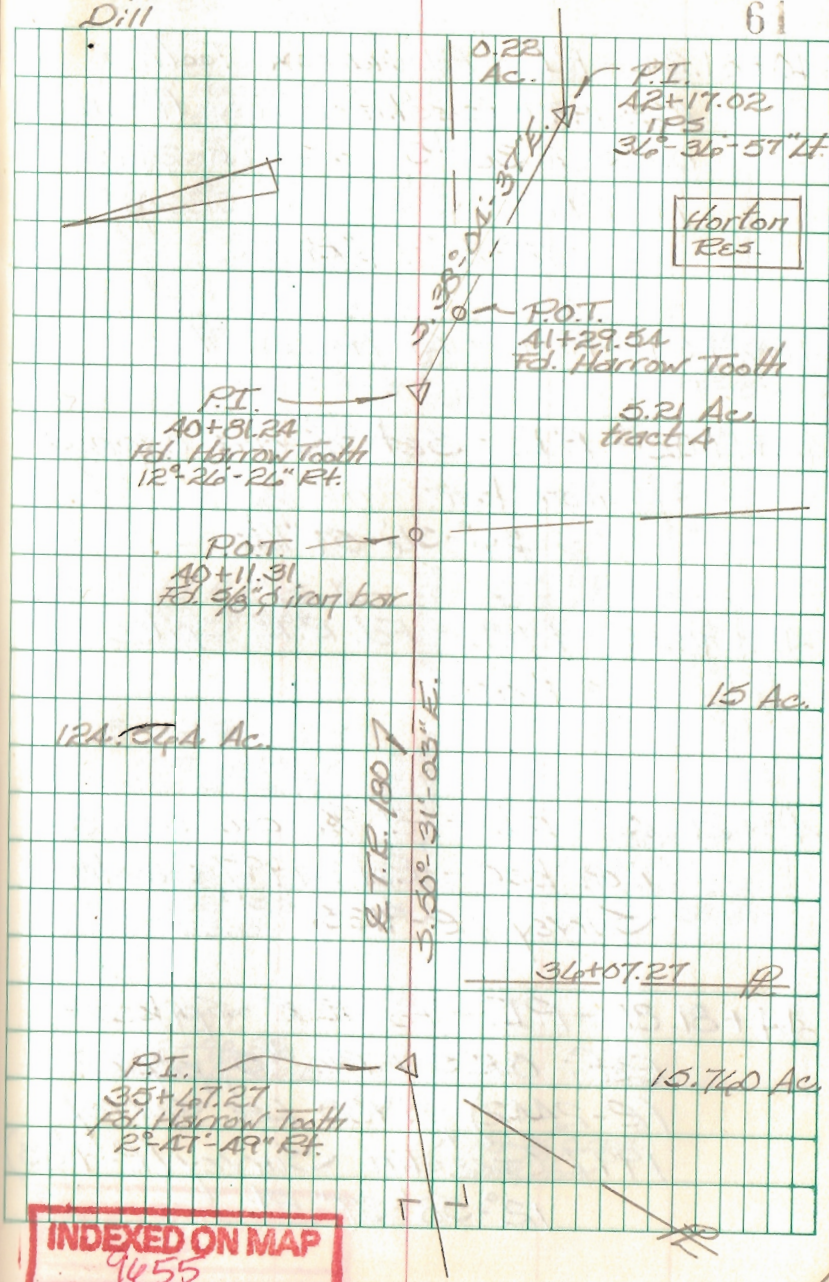 Dill
61
0.22
Ac.
P.I.
42+17.02
IPS
36°-36'-57" Lt.
S.38°-04'-37"E.
Horton
Res.
P.O.T.
41+29.54
Fd. Harrow Tooth
P.I.
40+81.24
Fd. Harrow Tooth
12°-26'-26" Rt.
5.21 Ac.
tract A
P.O.T.
40+11.31
Fd. 5/8"⌀ iron bar
15 Ac.
124.564 Ac.
℄ T.R. 180
S.50°-31'-03"E.
36+07.27 ⅊
P.I.
35+67.27
Fd. Harrow Tooth
2°-47'-49" Rt.
15.760 Ac.
⅊
INDEXED ON MAP
9655